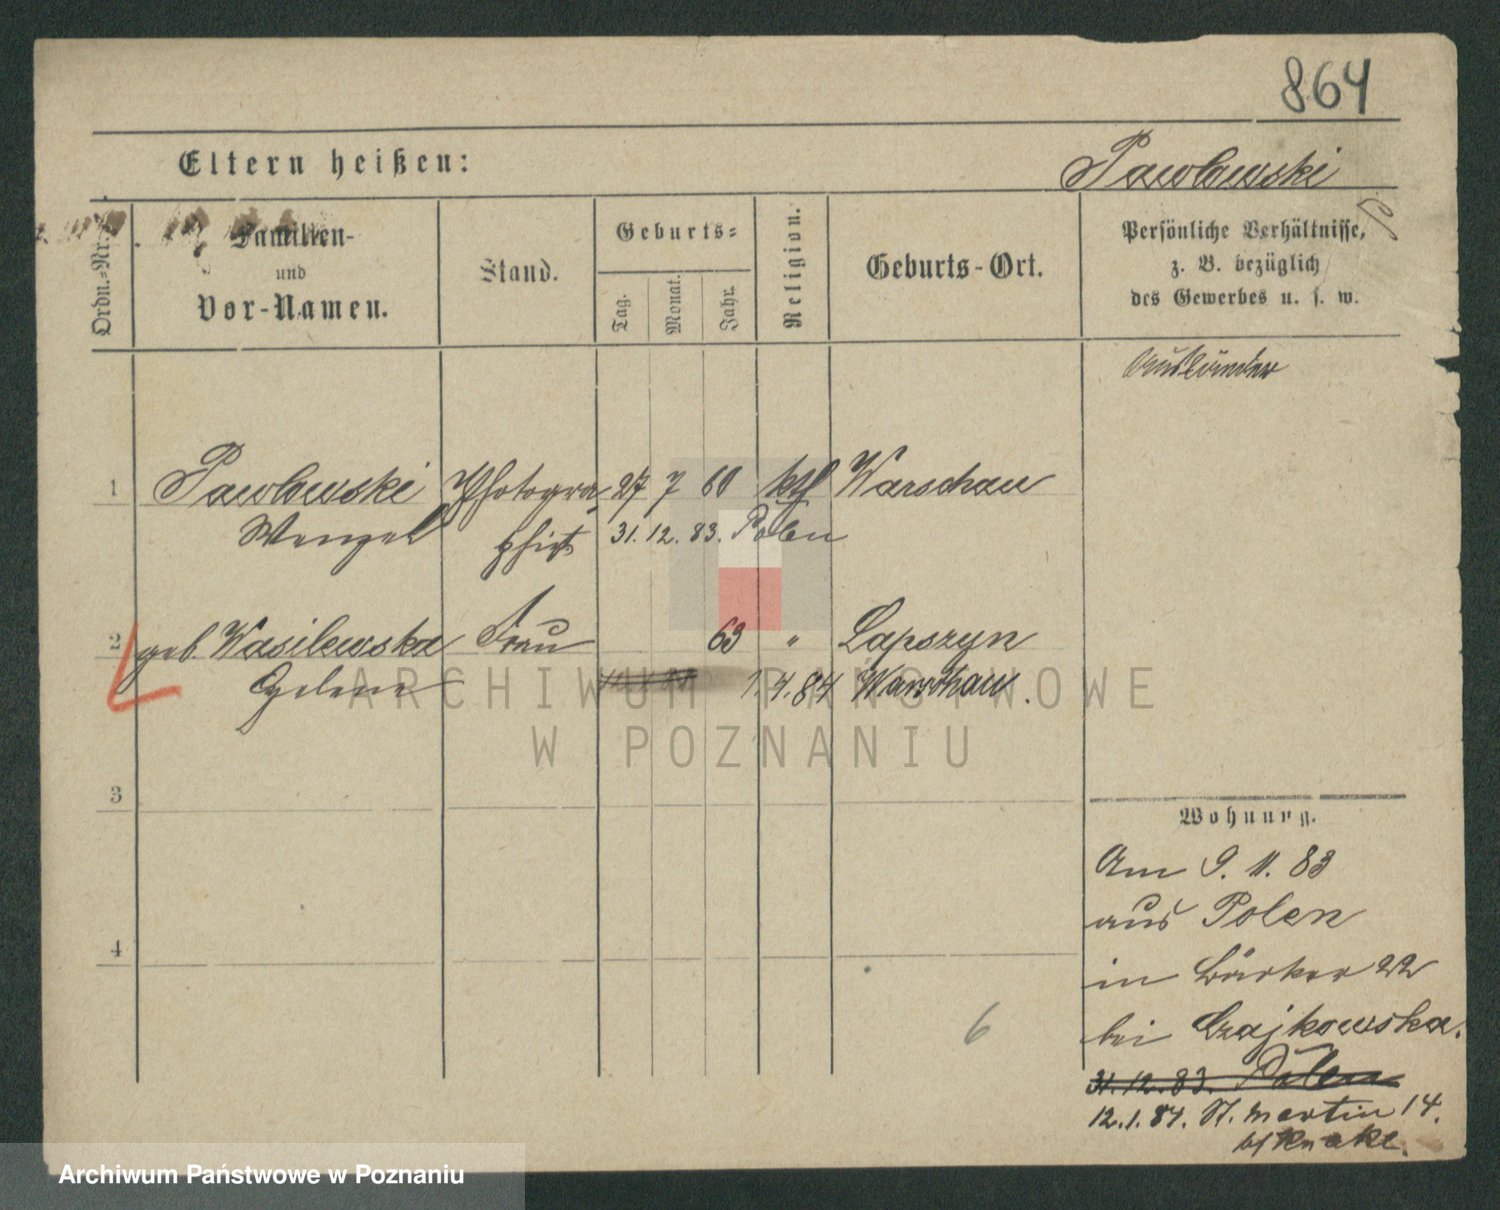 864
Eltern heißen:
Pawlowski
Ordn.-Nr.
Familien-
und
Vor-Namen.
Stand.
Geburts-
Tag.
Monat.
Jahr.
Religion.
Geburts-Ort.
Persönliche Verhältnisse,
z. B. bezüglich
des Gewerbes u. s. w.
Ausländer
1 Pawlowski Photogra 27 7 60 kth Warschau
Wenzel phist 31. 12. 83. Polen
2 geb. Wasilewska Frau 63 " Lapszyn
1.4.84 Warschau.
3
4
Wohnung.
Am 9. 11. 83
aus Polen
in Bäcker 22
bei Czajkowska.
31.12.83. Polen
12.1.84. St. Martin 14.
b/ Knake.
6
ARCHIWUM PAŃSTWOWE
W POZNANIU
Archiwum Państwowe w Poznaniu